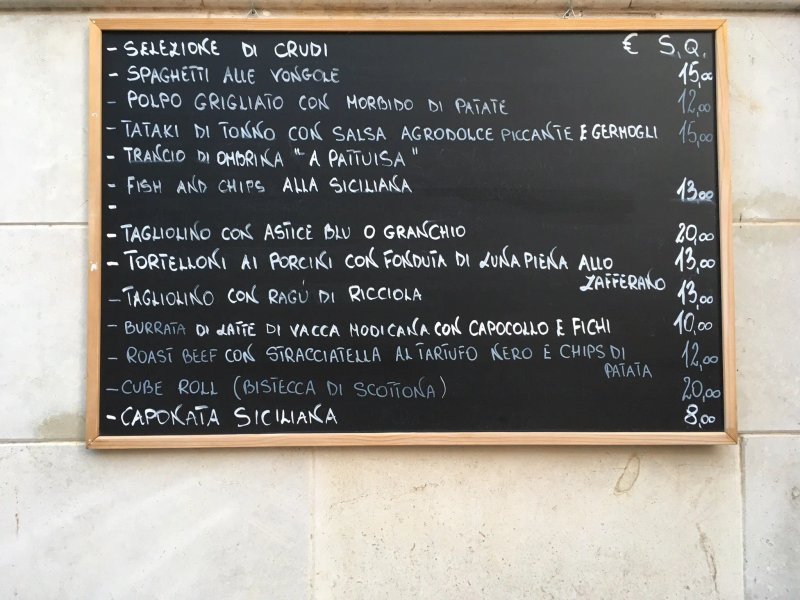 - SELEZIONE DI CRUDI € S.Q.
- SPAGHETTI ALLE VONGOLE 15,00
- POLPO GRIGLIATO CON MORBIDO DI PATATE 12,00
- TATAKI DI TONNO CON SALSA AGRODOLCE PICCANTE E GERMOGLI 15,00
- TRANCIO DI OMBRINA "A PATTUISA"
- FISH AND CHIPS ALLA SICILIANA 13,00
-
- TAGLIOLINO CON ASTICE BLU O GRANCHIO 20,00
- TORTELLONI AI PORCINI CON FONDUTA DI LUNA PIENA ALLO 13,00
ZAFFERANO
- TAGLIOLINO CON RAGÚ DI RICCIOLA 13,00
- BURRATA DI LATTE DI VACCA MODICANA CON CAPOCOLLO E FICHI 10,00
- ROAST BEEF CON STRACCIATELLA AL TARTUFO NERO E CHIPS DI 12,00
PATATA
- CUBE ROLL (BISTECCA DI SCOTTONA) 20,00
- CAPONATA SICILIANA 8,00